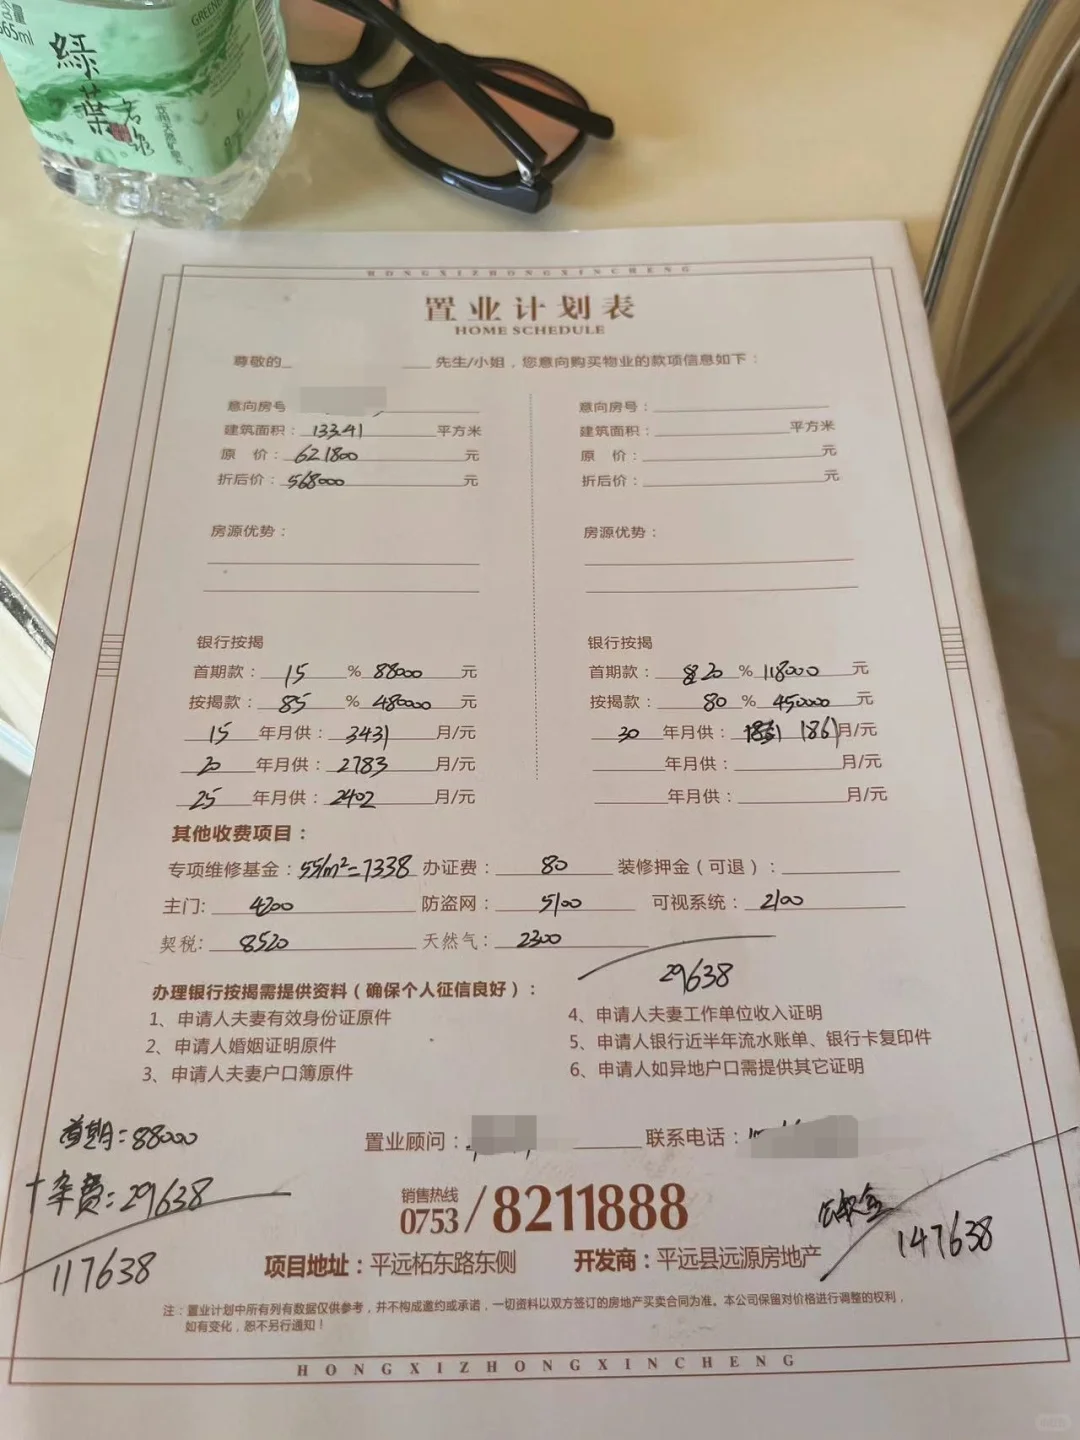 含量
665ml
GREENE
綠葉
名泉
饮用天然矿泉水
HONGXIZHONGXINCHENG
置业计划表
HOME SCHEDULE
尊敬的 先生/小姐，您意向购买物业的款项信息如下：
意向房号 意向房号：
建筑面积：133.41 平方米 建筑面积： 平方米
原 价：621800 元 原 价： 元
折后价：568000 元 折后价： 元
房源优势： 房源优势：
银行按揭 银行按揭
首期款：15 % 88000 元 首期款：20 % 118000 元
按揭款：85 % 480000 元 按揭款：80 % 450000 元
15 年月供：3431 月/元 30 年月供：1861 月/元
20 年月供：2783 月/元 年月供： 月/元
25 年月供：2402 月/元 年月供： 月/元
其他收费项目：
专项维修基金：55/m²=7338 办证费：80 装修押金（可退）：
主门：4200 防盗网：5100 可视系统：2100
契税：8520 天然气：2300
29638
办理银行按揭需提供资料（确保个人征信良好）：
1、申请人夫妻有效身份证原件
2、申请人婚姻证明原件
3、申请人夫妻户口簿原件
4、申请人夫妻工作单位收入证明
5、申请人银行近半年流水账单、银行卡复印件
6、申请人如异地户口需提供其它证明
首期：88000
+杂费：29638
117638
置业顾问： 联系电话：
销售热线
0753/8211888
147638
项目地址：平远柘东路东侧 开发商：平远县远源房地产
注：置业计划中所有列有数据仅供参考，并不构成邀约或承诺，一切资料以双方签订的房地产买卖合同为准。本公司保留对价格进行调整的权利，
如有变化，恕不另行通知！
HONGXIZHONGXINCHENG